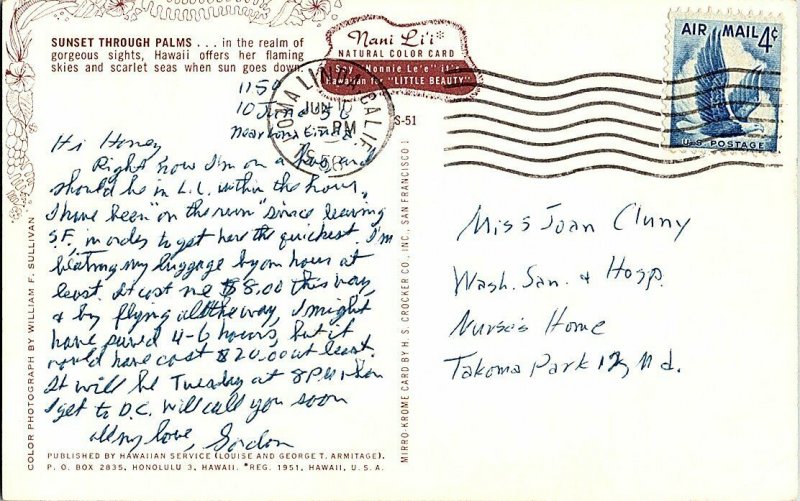 SUNSET THROUGH PALMS . . . in the realm of
gorgeous sights, Hawaii offers her flaming
skies and scarlet seas when sun goes down.
Nani Li'i*
NATURAL COLOR CARD
Say "Nonnie Le'e" it's
Hawaiian for "LITTLE BEAUTY"
S-51
LOMA LINDA, CALIF.
JUN 10
PM
1958
AIR MAIL 4¢
U.S. POSTAGE
1150
10 June 58
Near Loma Linda
Hi Honey
Right now I'm on a and
should be in L.L. within the hour,
I have been "on the run" since leaving
S.F., in order to get here the quickest. I'm
beating my luggage by an hour at
least. It cost me $8.00 this way,
& by flying all the way, I might
have saved 4-6 hours, but it
would have cost $20.00 at least.
It will be Tuesday at 8PM when
I get to D.C. Will call you soon
All my love, Gordon
Miss Joan Cluny
Wash. San. & Hosp.
Nurse's Home
Takoma Park 12, Md.
COLOR PHOTOGRAPH BY WILLIAM F. SULLIVAN
MIRRO-KROME CARD BY H. S. CROCKER CO., INC., SAN FRANCISCO
PUBLISHED BY HAWAIIAN SERVICE (LOUISE AND GEORGE T. ARMITAGE)
P. O. BOX 2835, HONOLULU 3, HAWAII. *REG. 1951, HAWAII, U.S.A.